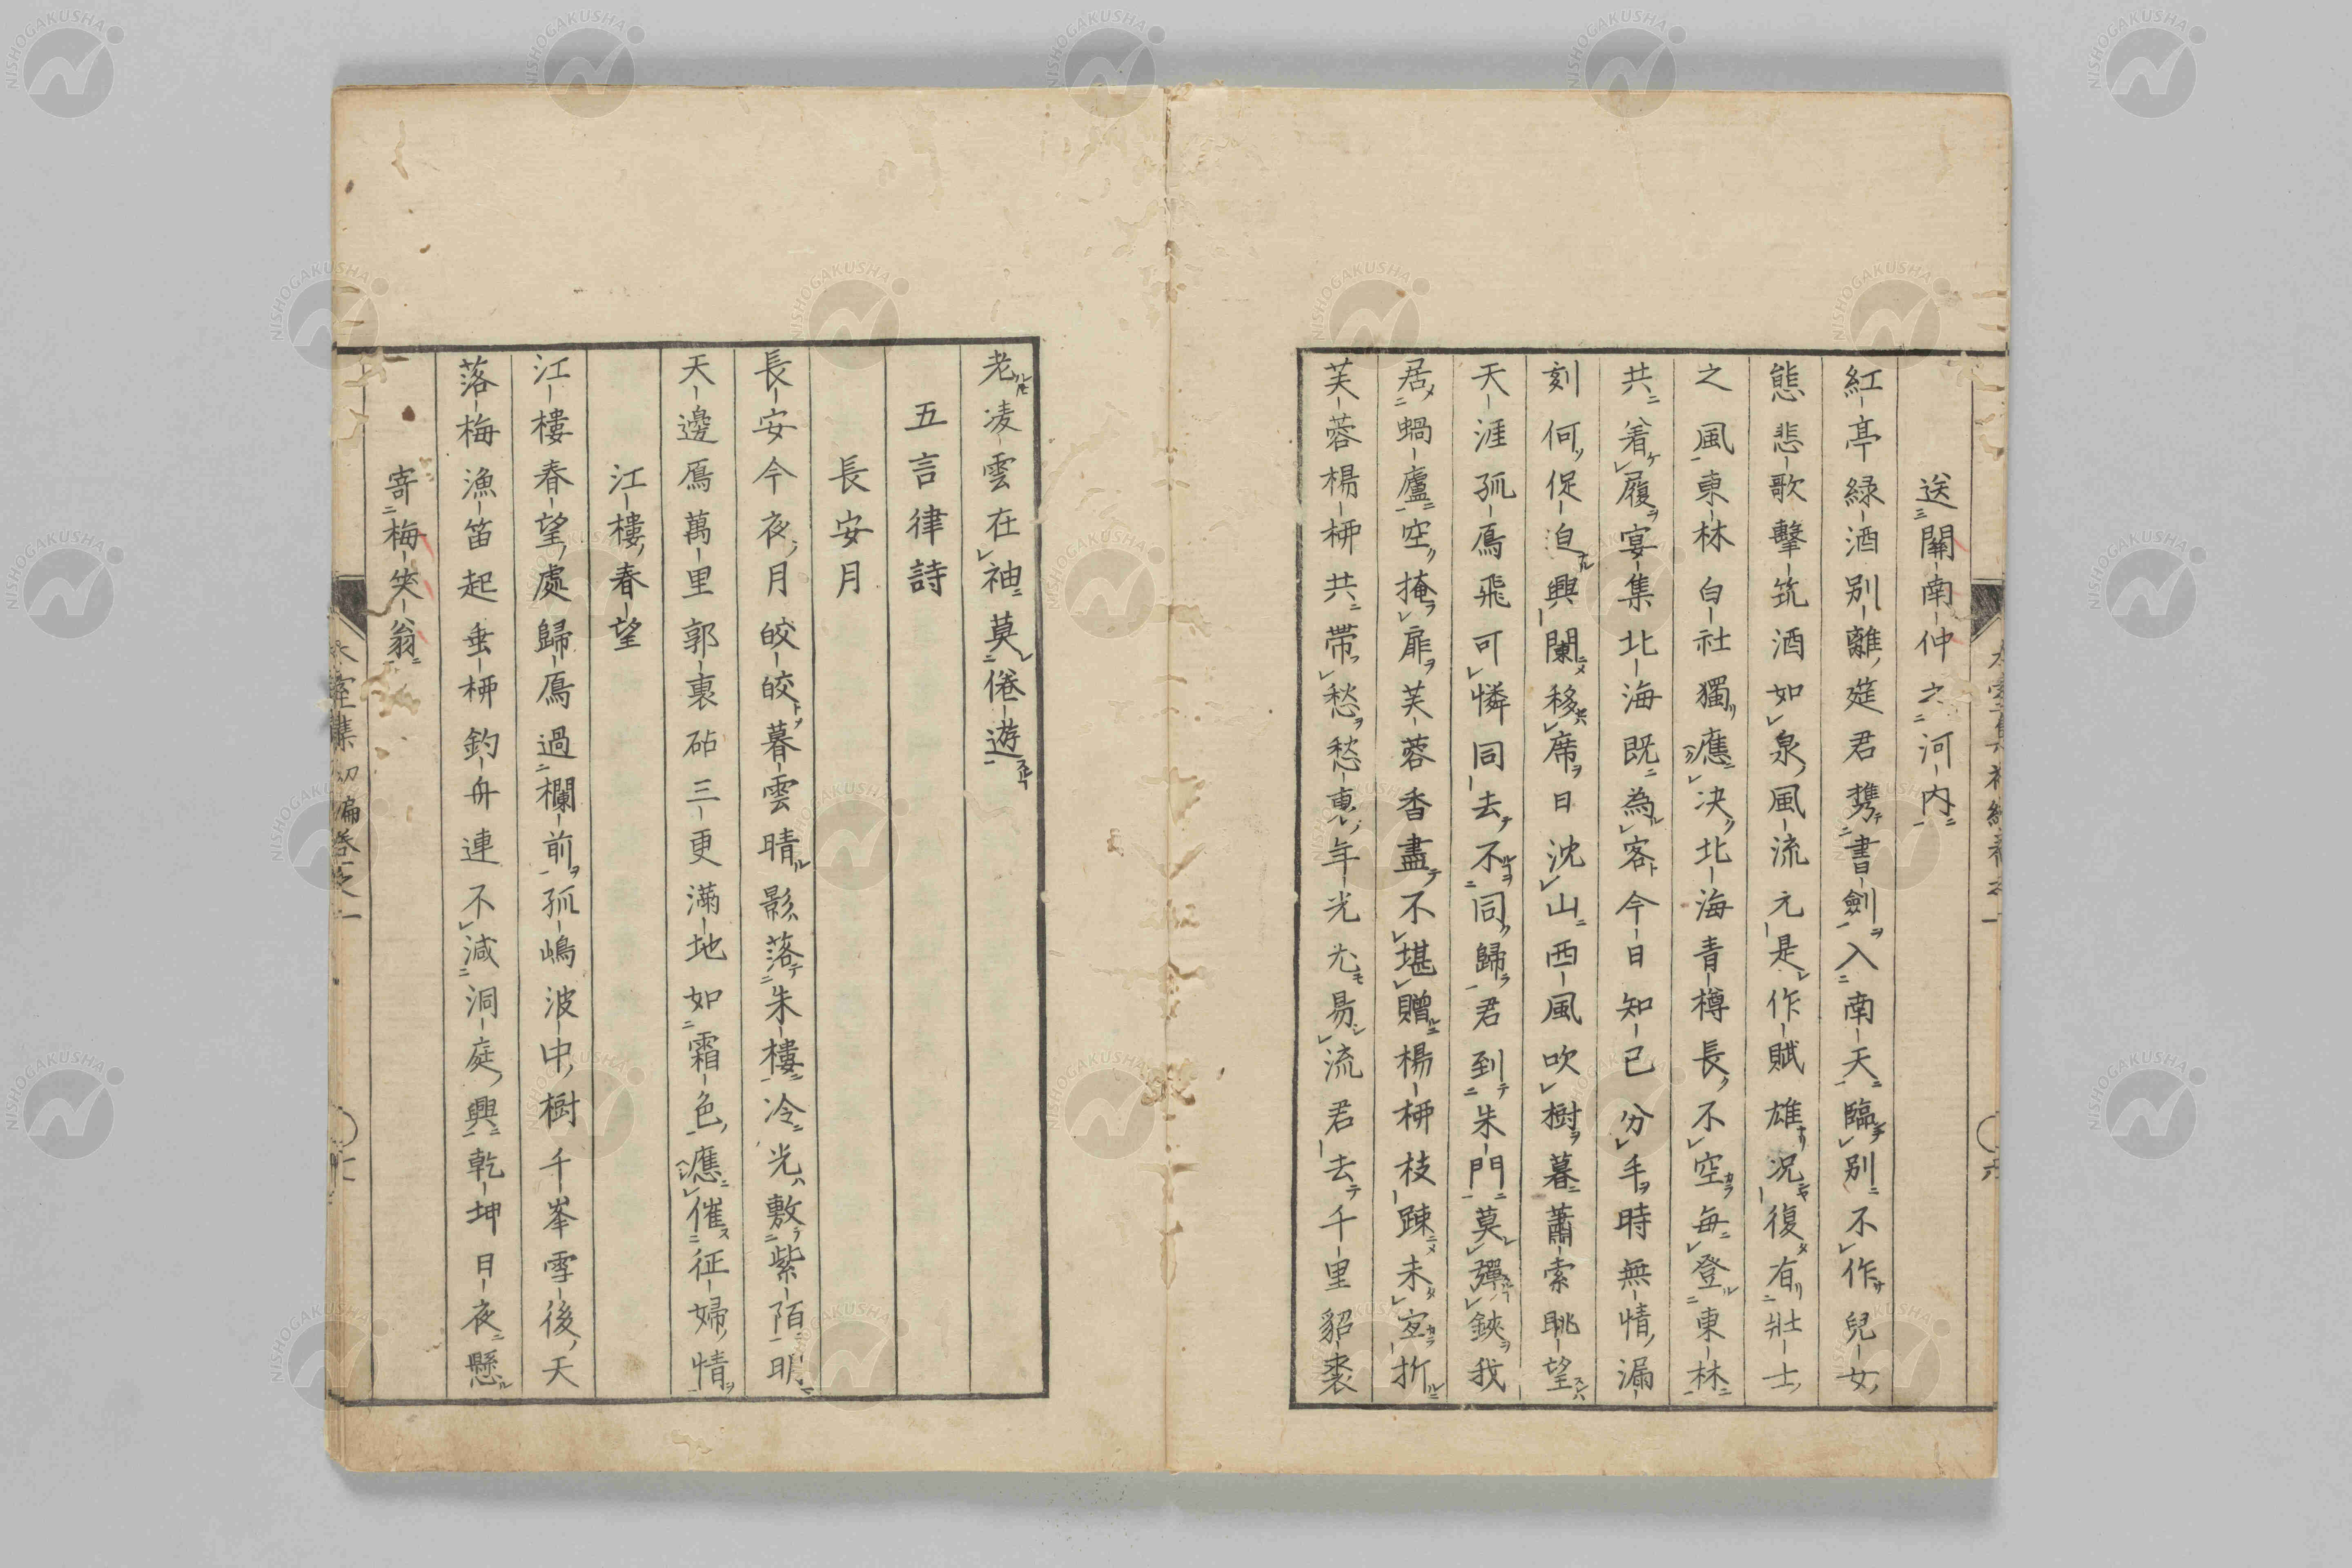 送關南仲之河内
紅亭緑酒別離筵君携書劍入南天臨別不作兒女
態悲歌擊筑酒如泉風流元是作賦雄況復有壯士
之風東林白社獨應決北海青樽長不空每登東林
共著履宴集北海既為客今日知己分手時無情漏
刻何促迫興闌移席日沈山西風吹樹暮蕭索眺望
天涯孤鴈飛可憐同去不同歸君到朱門莫彈鋏我
居蝸廬空掩扉芙蓉香盡不堪贈楊柳枝踈未宜折
芙蓉楊柳共帶愁愁裏年光尤易流君去千里貂裘
老凌雲在袖莫倦遊
五言律詩
長安月
長安今夜月皎皎暮雲晴影落朱樓冷光敷紫陌明
天邊鴈萬里郭裏砧三更滿地如霜色應催征婦情
江樓春望
江樓春望處歸鴈過欄前孤嶋波中樹千峯雪後天
落梅漁笛起垂柳釣舟連不減洞庭興乾坤日夜懸
寄梅笑翁
室集初編卷之一
NISHOGAKUSHA